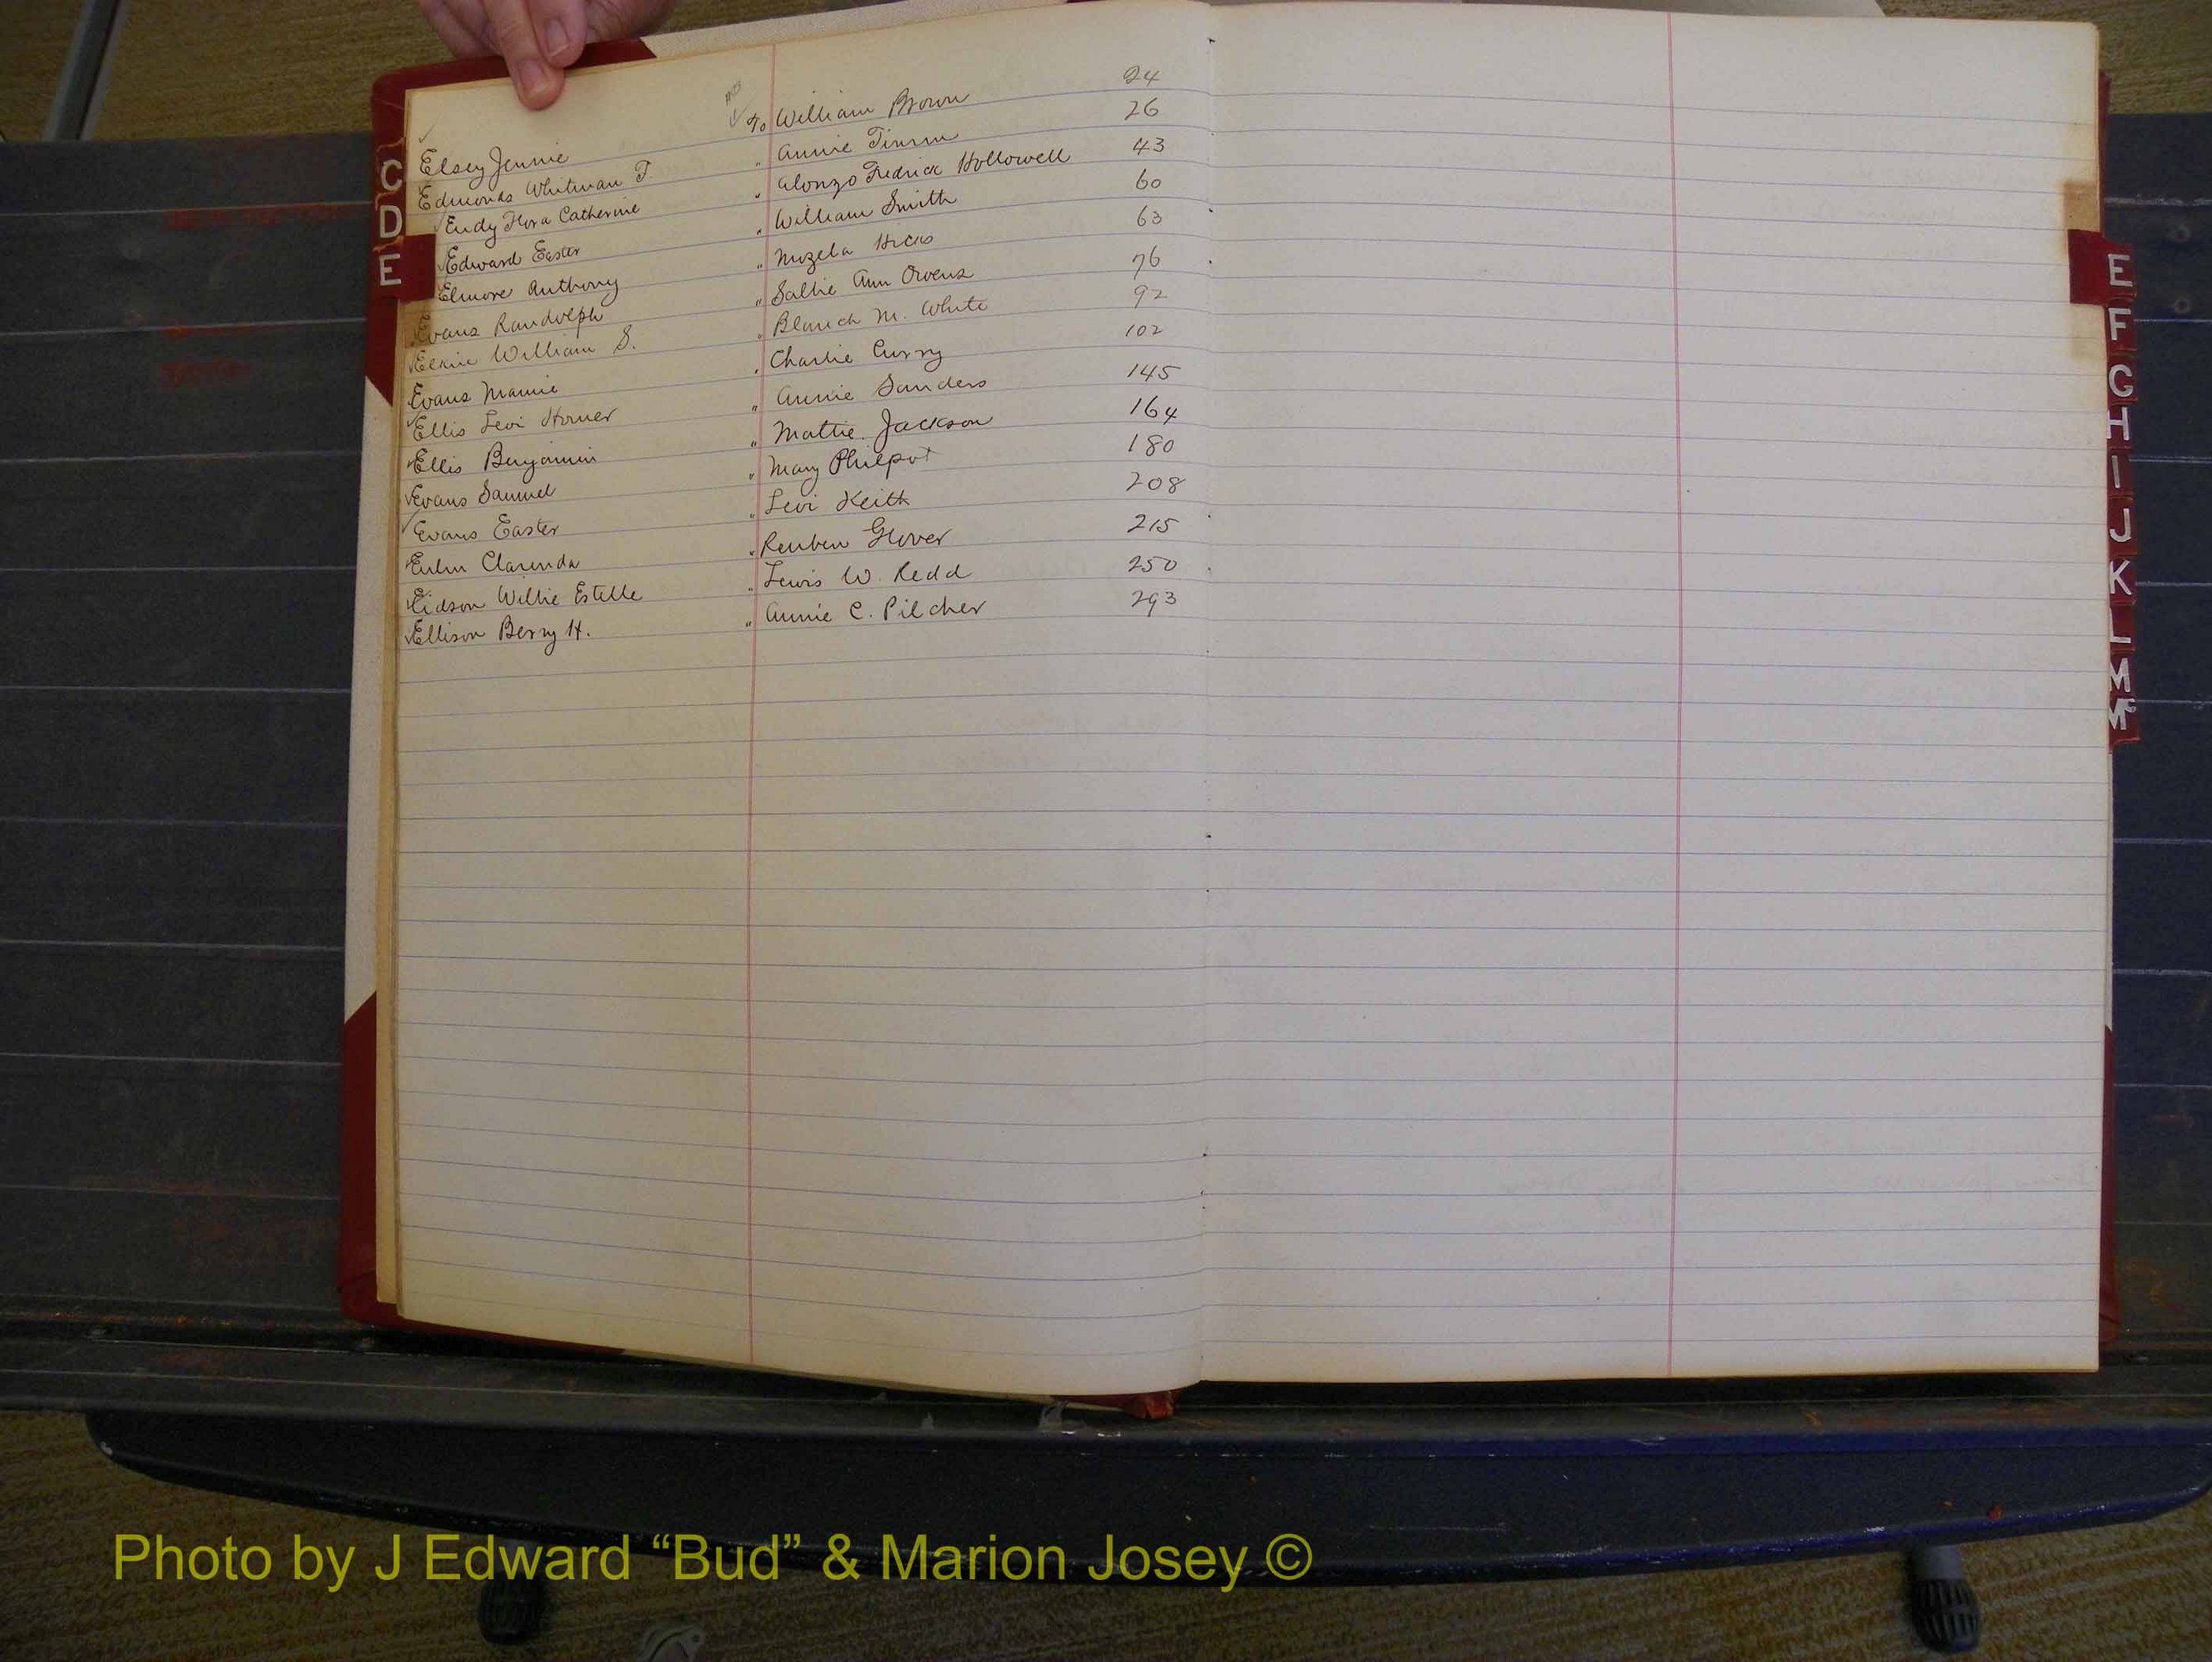 Elsey Jennie To William Brown 24
Edmonds Whitman T " Annie Timm 26
Eudy Flora Catherine " Alonzo Fedrick Hollowell 43
Edward Easter " William Smith 60
Elmore Anthony " Mozela Hicks 63
Evans Randolph " Sallie Ann Owens 76
William S. " Blanch M. White 92
Evans Mamie " Charlie Curry 102
Ellis Levi Homer " Annie Sanders 145
Ellis Benjamin " Mattie Jackson 164
Evans Samuel " Mary Philpot 180
Evans Easter " Levi Keith 208
Clarinda " Reuben Glover 215
Eidson Willie Estelle " Lewis W. Redd 250
Ellison Berry H. " Annie C. Pilcher 293
C
D
E
E
F
G
H
I
J
K
L
M
Mc
Photo by J Edward “Bud” & Marion Josey ©